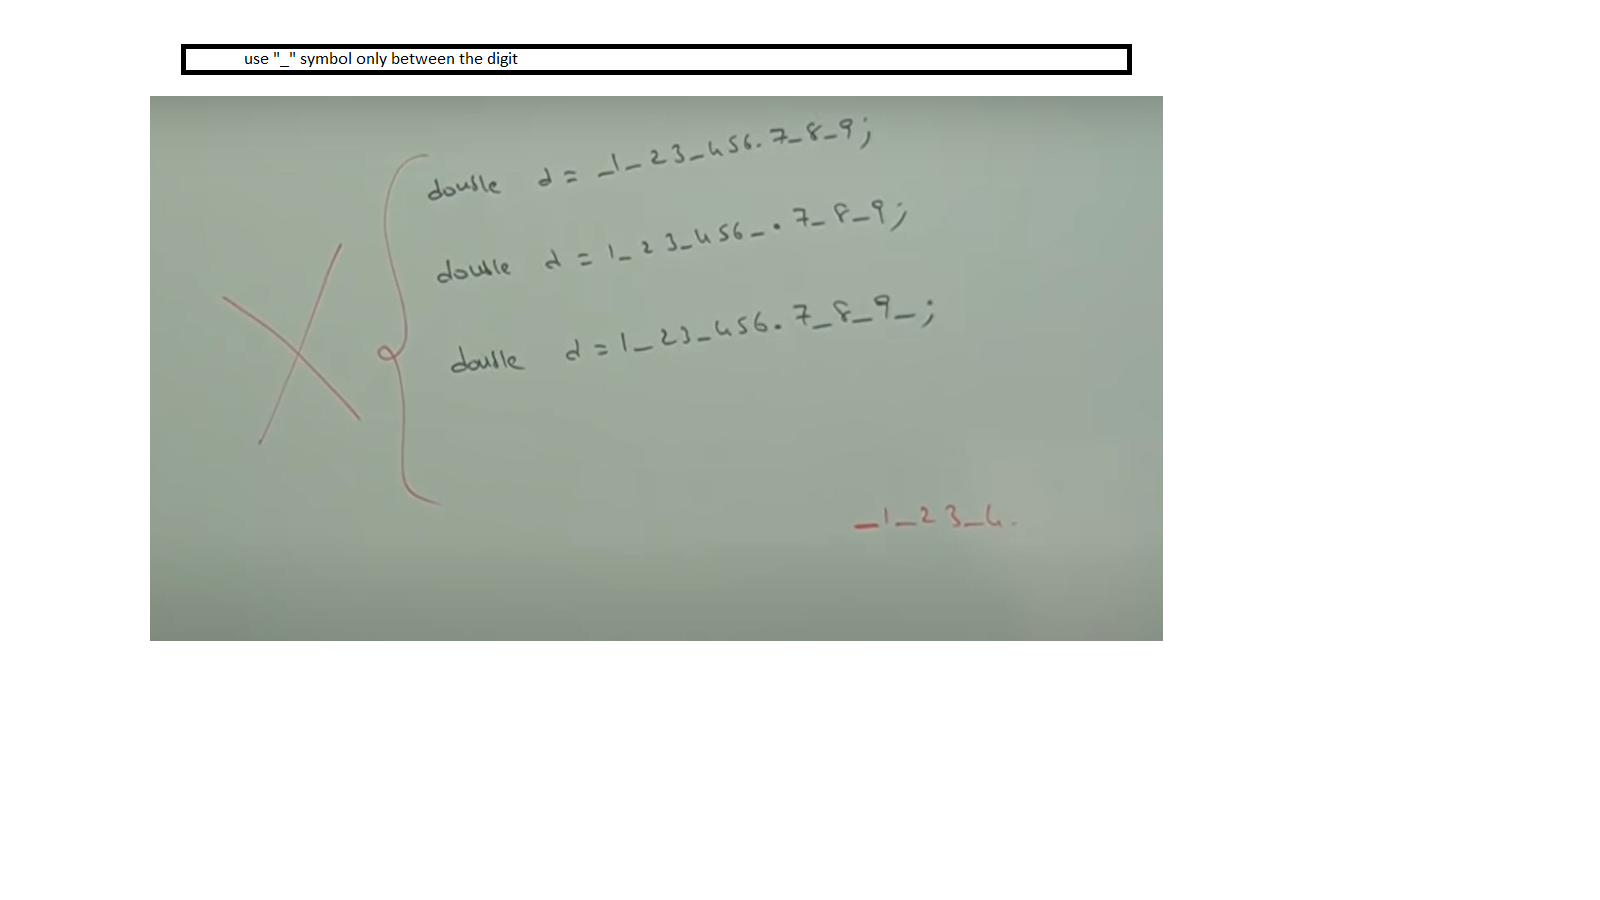 use "_" symbol only between the digit
double d = _1_23_456.7_8_9;
double d = 1_23_456_.7_8_9;
double d = 1_23_456.7_8_9_;
_1_23_4.